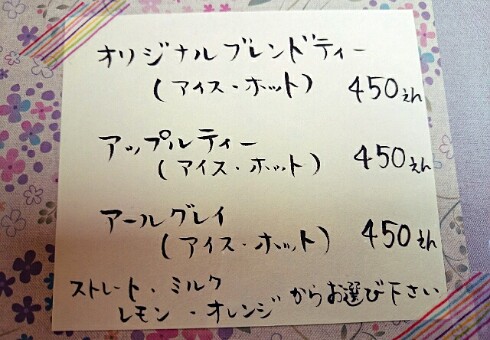 オリジナルブレンドティー
(アイス・ホット) 450えん
アップルティー
(アイス・ホット) 450えん
アールグレイ
(アイス・ホット) 450えん
ストレート・ミルク
レモン・オレンジ からお選び下さい